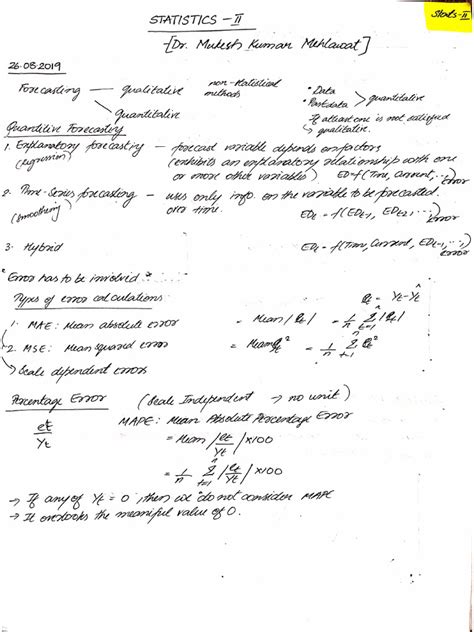 Stats-II
STATISTICS - II
[Dr. Mukesh Kumar Mehlawat]
26.08.2019
Forecasting — qualitative non-statistical methods
quantitative
• Data
• Past data > quantitative
If atleast one is not satisfied
↳ qualitative.
Quantitive Forecasting
1. Explanatory forecasting — forecast variable depends on factors
(regression) (exhibits an explanatory relationship with one
or more other variable) ED = f(Tm, Current, ..., Error)
2. Time-Series forecasting — uses only info. on the variable to be forecasted
(smoothing) over time. EDt = f(EDt-1, EDt-2, ..., Error)
3. Hybrid EDt = f(Tm, Current, EDt-1, ..., Error)
* Error has to be involved
Types of error calculations: et = Yt - Ŷt
1. MAE: Mean absolute error = Mean |et| = 1/n Σ t=1 n |et|
2. MSE: Mean squared error = Mean et² = 1/n Σ t=1 n et²
↳ Scale dependent errors
Percentage Error (Scale Independent → no unit)
et/Yt MAPE: Mean Absolute Percentage Error
= Mean |et/Yt| x100
= 1/n Σ t=1 n |et/Yt| x100
→ If any of Yt = 0, then we do not consider MAPE
→ It overlooks the meaniful value of 0.